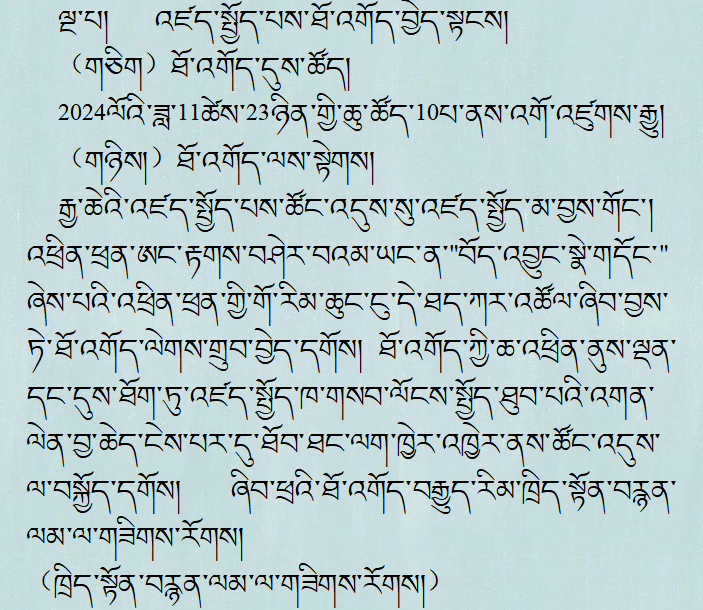 ལྔ་པ།    འཛད་སྤྱོད་པས་ཐོ་འགོད་བྱེད་སྟངས།
（གཅིག）ཐོ་འགོད་དུས་ཚོད།
2024ལོའི་ཟླ་11ཚེས་23ཉིན་གྱི་ཆུ་ཚོད་10པ་ནས་འགོ་འཛུགས་རྒྱུ།
（གཉིས།）ཐོ་འགོད་ལས་སྟེགས།
རྒྱ་ཆེའི་འཛད་སྤྱོད་པས་ཚོང་འདུས་སུ་འཛད་སྤྱོད་མ་བྱས་གོང་།
འཕྲིན་ཕྲན་ཨང་རྟགས་བཤེར་བའམ་ཡང་ན་"བོད་འབྱུང་སྣེ་གདོང་"
ཞེས་པའི་འཕྲིན་ཕྲན་གྱི་གོ་རིམ་ཆུང་ངུ་དེ་ཐད་ཀར་འཚོལ་ཞིབ་བྱས་
ཏེ་ཐོ་འགོད་ལེགས་གྲུབ་བྱེད་དགོས། ཐོ་འགོད་ཀྱི་ཆ་འཕྲིན་ནུས་ལྡན་
དང་དུས་ཐོག་ཏུ་འཛད་སྤྱོད་ཁ་གསབ་ལོངས་སྤྱོད་ཐུབ་པའི་འགན་
ལེན་བྱ་ཆེད་ངེས་པར་དུ་ཐོབ་ཐང་ལག་ཁྱེར་འཁྱེར་ནས་ཚོང་འདུས་
ལ་བསྐྱོད་དགོས།    ཞིབ་ཕྲའི་ཐོ་འགོད་བརྒྱུད་རིམ་ཁྲིད་སྟོན་བརྙན་
ལམ་ལ་གཟིགས་རོགས།
（ཁྲིད་སྟོན་བརྙན་ལམ་ལ་གཟིགས་རོགས།）